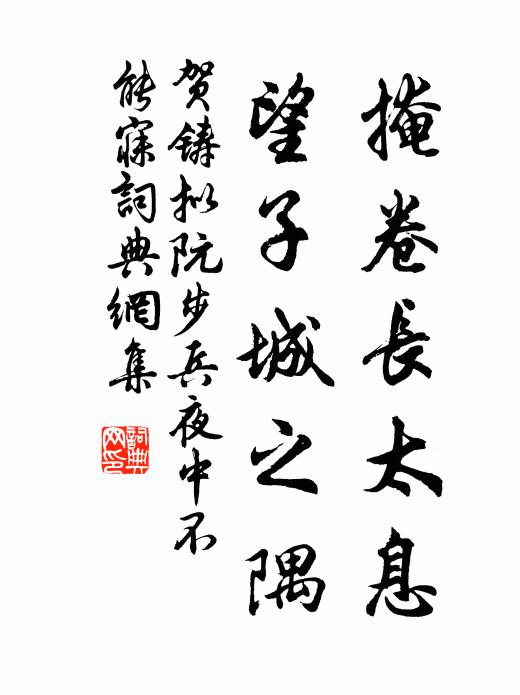 掩卷長太息
望子城之隅
賀鑄拟阮步兵夜中不
能寐詞典網集
詞典
网印